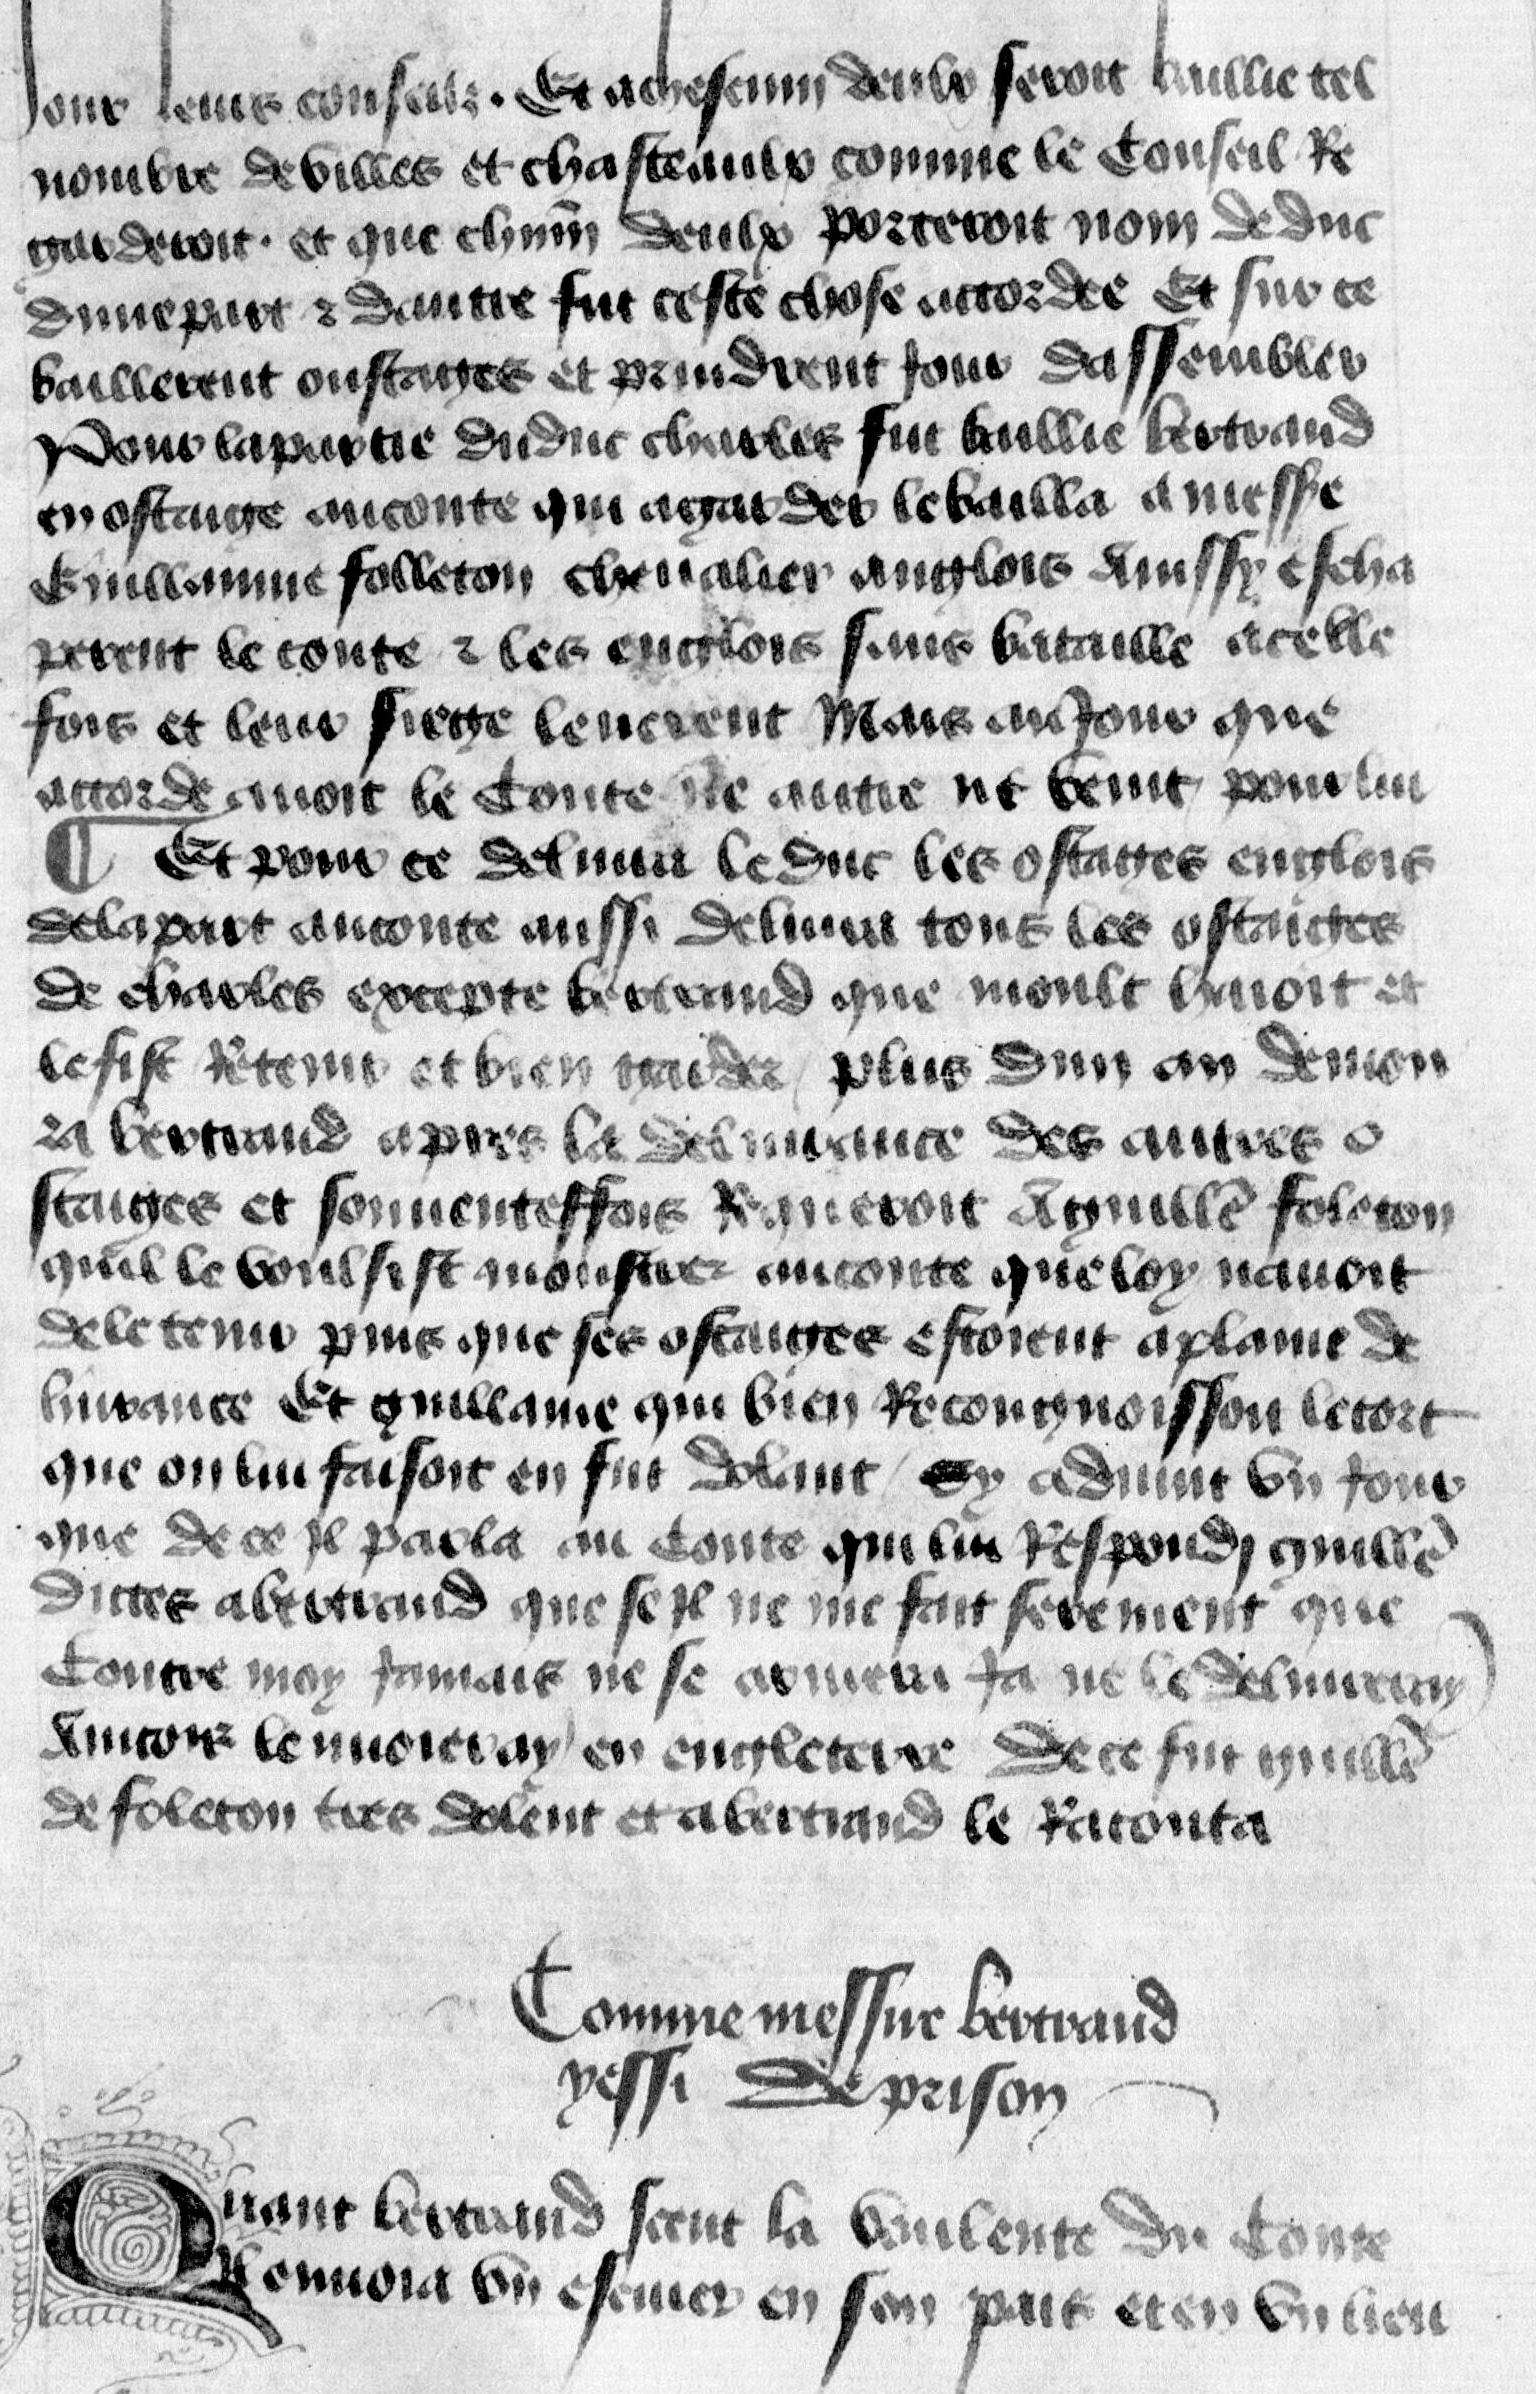 Jour leurs conseulz. Et achescun deulx seroit baillie tel
nombre de villes et chasteaulx comme le Conseil Re
garderoit. et que chũn deulx porteroit nom de duc
dune part ⁊ dautre fut ceste chose accordee Et sur ce
baillerent oustaiges et prindrent Jour dassembler
Pour la partie du duc charles fut baillie bertrand
en ostaige au conte qui a garder le bailla a messre
Guillaume folleton chevalier anglois Aussy escha
perent le conte ⁊ les englois sans bataille a celle
fois et leur siege leverent Mais au Jour que
accorde avoit le Conte ne autre ne vint pour lui
¶ Et pour ce delivra le duc les ostages englois
de la part au conte aussi delivra tous les ostaiges
de charles excepte bertrand que moult hayoit et
le fist Retenir et bien garder / plus dun an demou
ra bertrand apres la delivrance des autres o
staiges et souventeffois Requeroit A guillẽ foleton
quil le voulsist monstrer au conte que loy navoit
de le tenir puis que ses ostaiges estoient a plaine de
livrance Et guillame qui bien Recongnoisson le tort
que on lui faisoit en fut dolant / Cy advint vn Jour
que de ce Jl parla au Conte qui lui Respondi guillẽ
dictes a bertrand que se Jl ne me fait serement que
Contre moy Jamais ne se armera Ja ne le delivreray
Aincois lenvoieray en engleterre De ce fut guillẽ
de foleton tres dolent et a bertrand le Raconta
Comme messire bertrand
yessi de prison
Quant bertrand sceut la voulente du Conte
Jl envoia vn escuier en son pais et en vn lieu